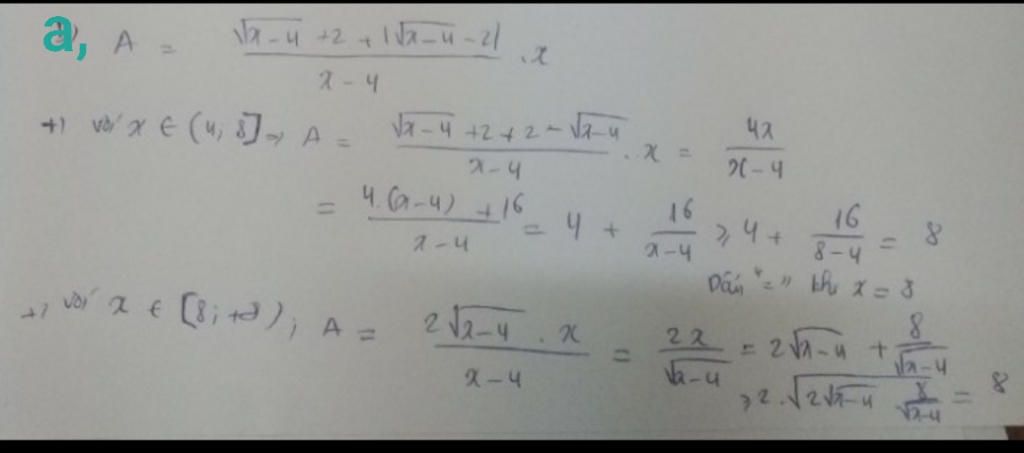 a, A = (√(x-4) + 2 + |√(x-4) - 2|)/(x-4) . x
+) với x ∈ (4; 8] ⇒ A = (√(x-4) + 2 + 2 - √(x-4))/(x-4) . x = 4x/(x-4)
= (4.(x-4) + 16)/(x-4) = 4 + 16/(x-4) ⩾ 4 + 16/(8-4) = 8
Dấu "=" khi x = 8
+) với x ∈ [8; +∞); A = (2√(x-4) . x)/(x-4) = 2x/√(x-4) = 2√(x-4) + 8/√(x-4)
⩾ 2.√(2√(x-4) 8/√(x-4)) = 8